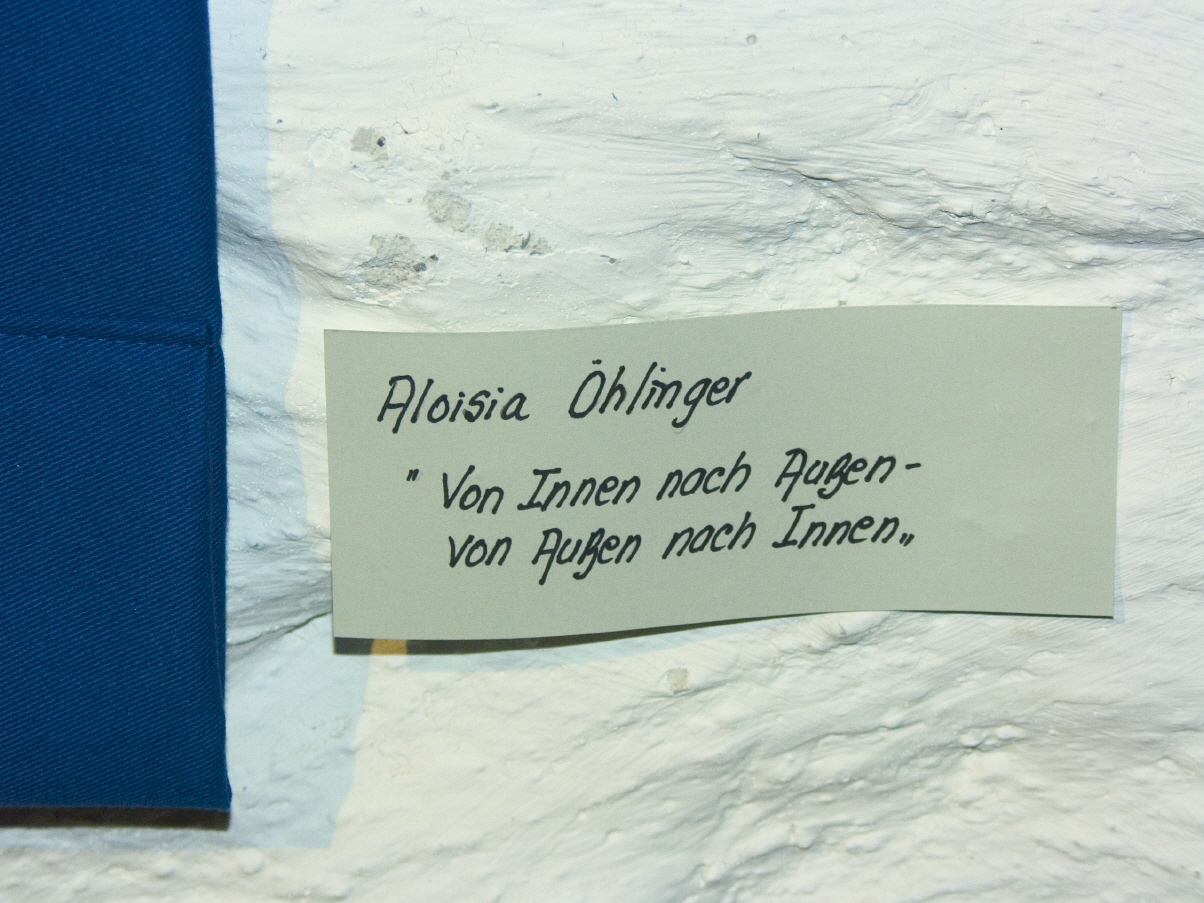 Aloisia Öhlinger
" Von Innen nach Außen-
von Außen nach Innen„